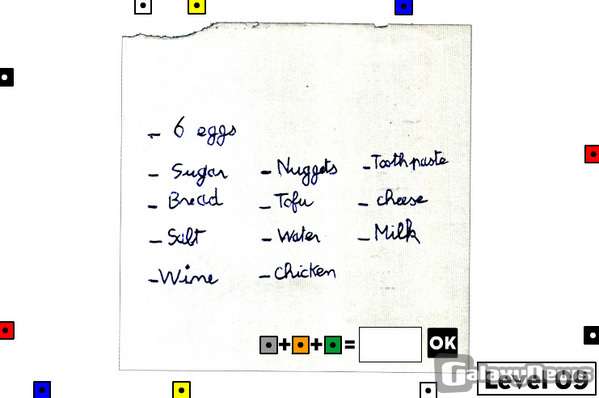 - 6 eggs
- Sugar - Nuggets - Toothpaste
- Bread - Tofu - cheese
- Salt - Water - Milk
- Wine - chicken
+ + = OK
GalaxyNews
Level 09